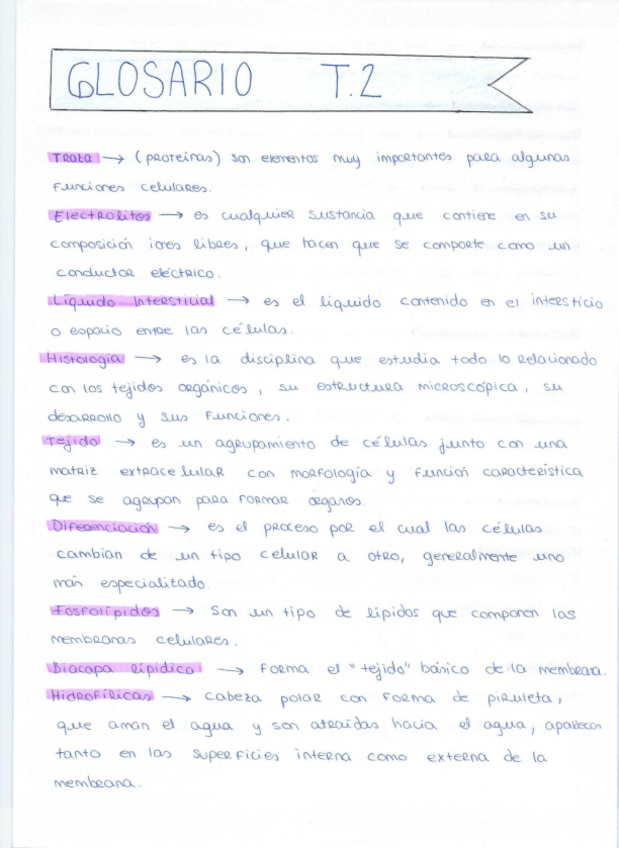 GLOSARIO T.2
Traza → (proteínas) son elementos muy importantes para algunas
funciones celulares.
Electrolitos → es cualquier sustancia que contiene en su
composición iones libres, que hacen que se comporte como un
conductor eléctrico.
Líquido Intersticial → es el líquido contenido en el intersticio
o espacio entre las células.
Histología → es la disciplina que estudia todo lo relacionado
con los tejidos orgánicos, su estructura microscópica, su
desarrollo y sus funciones.
Tejido → es un agrupamiento de células junto con una
matriz extracelular con morfología y función característica
que se agrupan para formar órganos.
Diferenciación → es el proceso por el cual las células
cambian de un tipo celular a otro, generalmente uno
más especializado.
Fosfolípidos → Son un tipo de lípidos que componen las
membranas celulares.
Biacapa lipídica → Forma el "tejido" básico de la membrana.
Hidrofílicas → cabeza polar con forma de piruleta,
que aman el agua y son atraídas hacia el agua, aparecen
tanto en las superficies interna como externa de la
membrana.